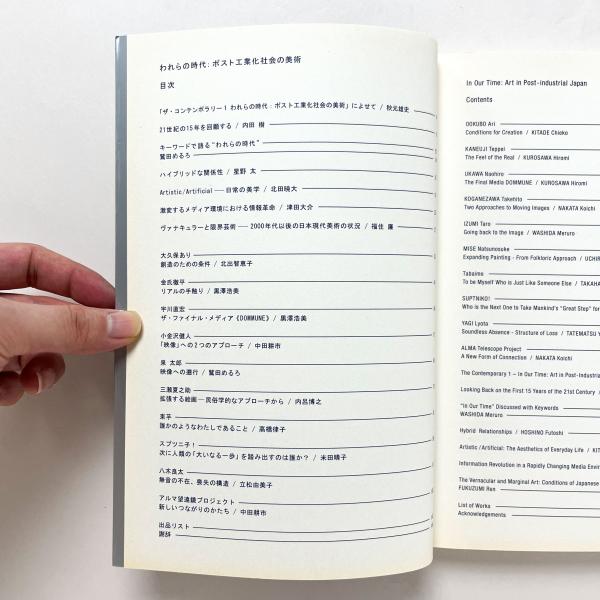 われらの時代：ポスト工業化社会の美術
目次
「ザ・コンテンポラリー1 われらの時代：ポスト工業化社会の美術」によせて / 秋元雄史
21世紀の15年を回顧する / 内田 樹
キーワードで語る"われらの時代"
鷲田めるろ
ハイブリッドな関係性 / 星野 太
Artistic/Artificial──日常の美学 / 北田暁大
激変するメディア環境における情報革命 / 津田大介
ヴァナキュラーと限界芸術──2000年代以後の日本現代美術の状況 / 福住 廉
大久保あり
創造のための条件 / 北出智恵子
金氏徹平
リアルの手触り / 黒澤浩美
宇川直宏
ザ・ファイナル・メディア《DOMMUNE》 / 黒澤浩美
小金沢健人
「映像」への2つのアプローチ / 中田耕市
泉 太郎
映像への遡行 / 鷲田めるろ
三瀬夏之助
拡張する絵画──民俗学的なアプローチから / 内呂博之
束芋
誰かのようなわたしであること / 高橋律子
スプツニ子！
次に人類の「大いなる一歩」を踏み出すのは誰か？ / 米田晴子
八木良太
無音の不在、喪失の構造 / 立松由美子
アルマ望遠鏡プロジェクト
新しいつながりのかたち / 中田耕市
出品リスト
謝辞
In Our Time: Art in Post-industrial Japan
Contents
OOKUBO Ari
Conditions for Creation / KITADE Chieko
KANEUJI Teppei
The Feel of the Real / KUROSAWA Hiromi
UKAWA Naohiro
The Final Media DOMMUNE / KUROSAWA Hiromi
KOGANEZAWA Takehito
Two Approaches to Moving Images / NAKATA Koichi
IZUMI Taro
Going back to the Image / WASHIDA Meruro
MISE Natsunosuke
Expanding Painting - From Folkloric Approach / UCHIR
Tabaimo
To be Myself Who is Just Like Someone Else / TAKAHA
SUPTNIKO!
Who is the Next One to Take Mankind's "Great Step" for
YAGI Lyota
Soundless Absence - Structure of Loss / TATEMATSU Y
ALMA Telescope Project
A New Form of Connection / NAKATA Koichi
The Contemporary 1 – In Our Time: Art in Post-industria
Looking Back on the First 15 Years of the 21st Century /
"In Our Time" Discussed with Keywords
WASHIDA Meruro
Hybrid Relationships / HOSHINO Futoshi
Artistic/Artificial: The Aesthetics of Everyday Life / KIT
Information Revolution in a Rapidly Changing Media Envir
The Vernacular and Marginal Art: Conditions of Japanese
FUKUZUMI Ren
List of Works
Acknowledgements